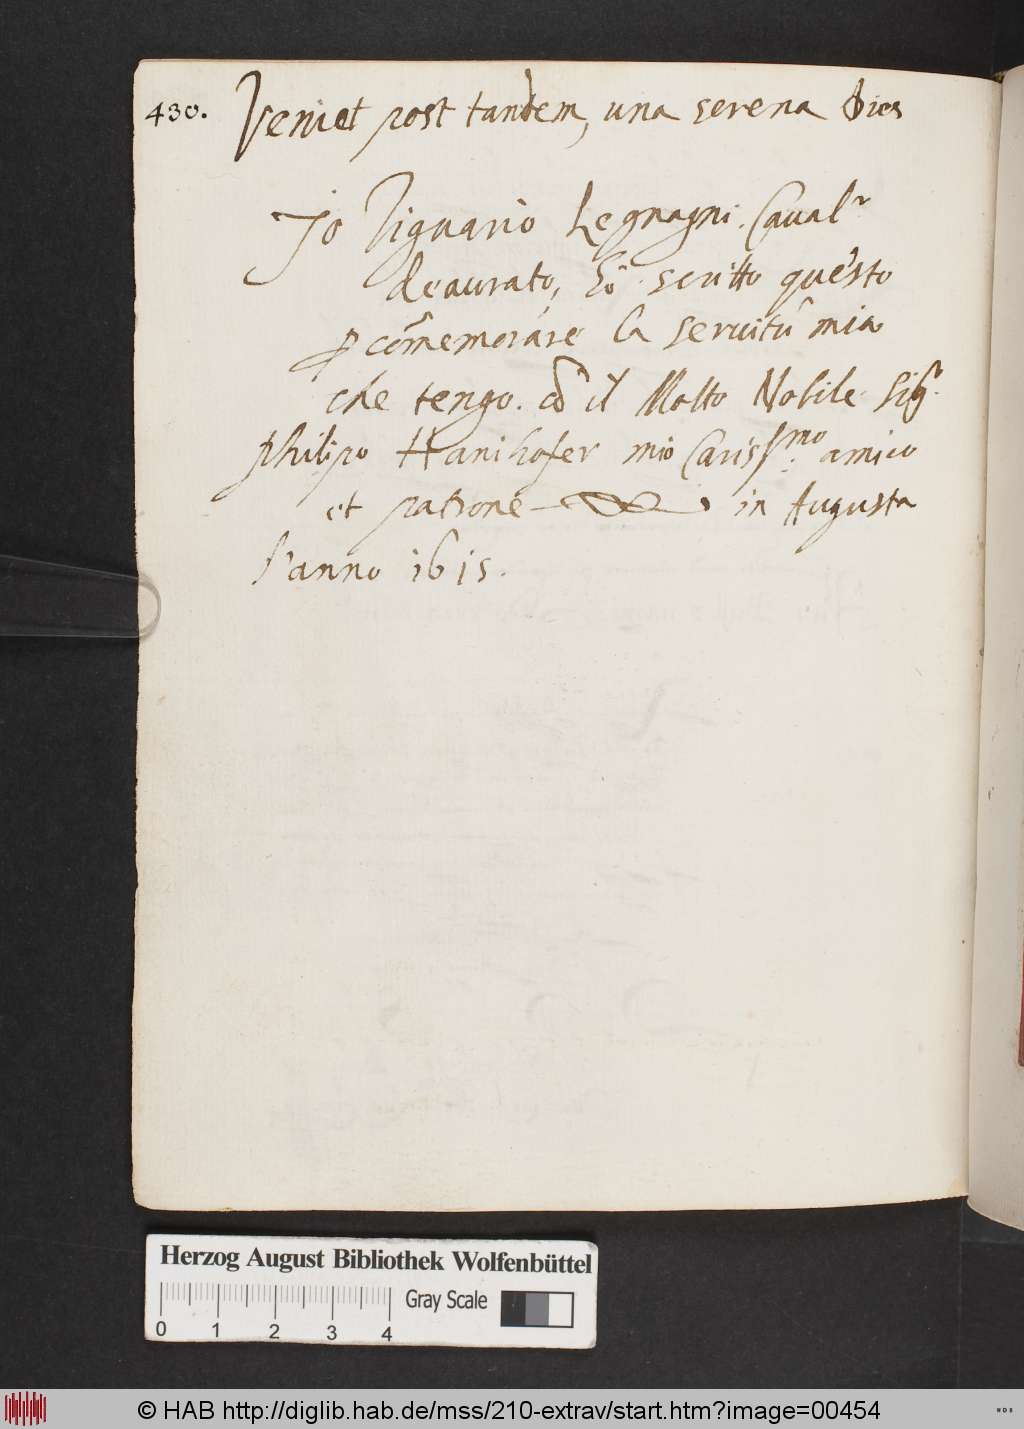 430. Veniet post tandem, una serena dies
Jo Viguario Legnagni. Caual.r
deaurato, hò scritto questo
p com̃emorare la seruitù mia
che tengo. cõ il Molto Nobile Sig.r
Philipo Hanihofer mio Cariss.mo amico
et patrone in Augusta
l'anno 1615.
Herzog August Bibliothek Wolfenbüttel
Gray Scale
0 1 2 3 4
© HAB http://diglib.hab.de/mss/210-extrav/start.htm?image=00454